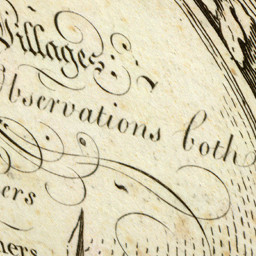 Villages;
Observations both
ers
ners